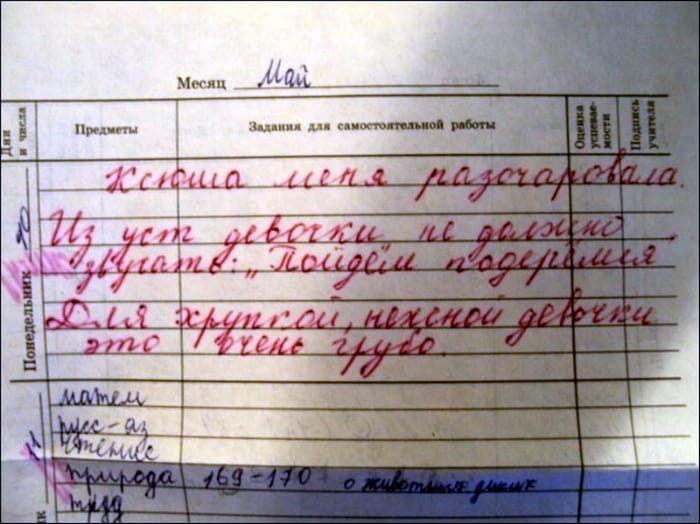 Месяц Май
Дни и числа Предметы Задания для самостоятельной работы Оценка успевае-мости Подпись учителя
Понедельник 10
Ксюша меня разочаровала.
Из уст девочки не должно
звучать: „Пойдём подерёмся.
Для хрупкой, нежной девочки
это очень грубо.
11
матем
русс-яз
чтение
природа 169-170 о животных диких
труд